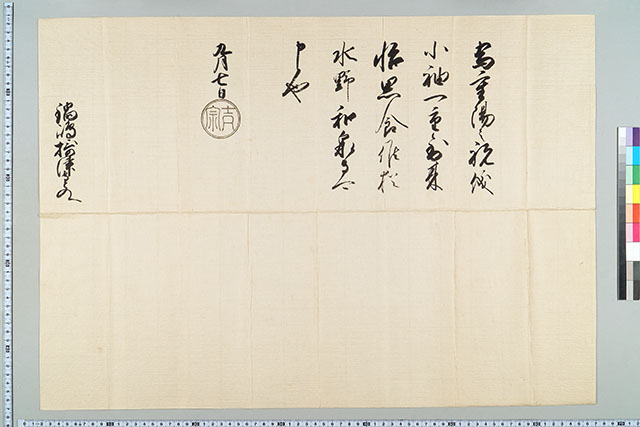 為重陽之祝儀
小袖一重到来
悦思食候猶
水野和泉守可
申也
九月七日
吉宗
鍋嶋摂津守とのへ